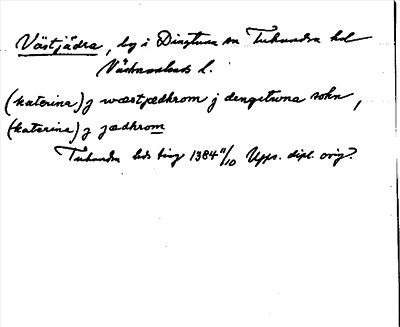 Västjädra, by i Dingtuna sn Tuhundra hd
Västmanlands l.
(katerina) j wæstjædhrom j dengetuna sokn,
(katerina) j jædhrom
Tuhundra hds ting 1384 11/10 Upps. dipl. orig.